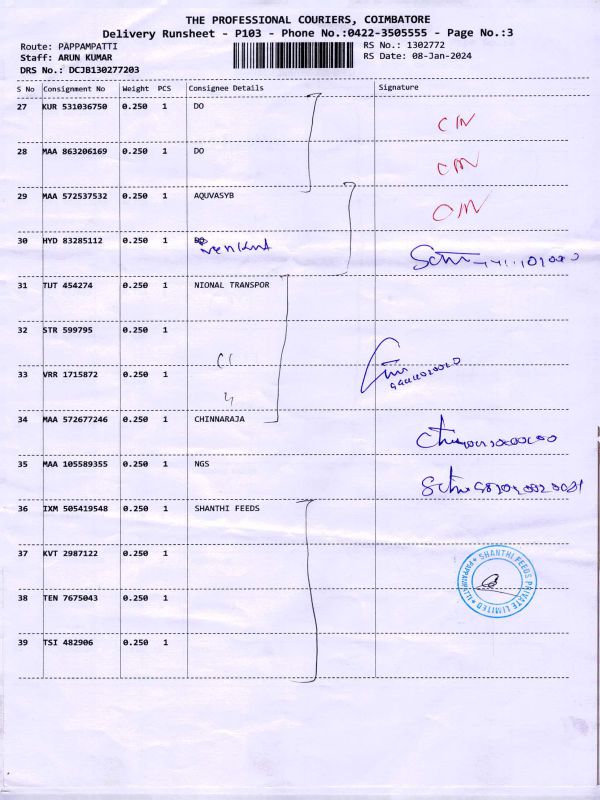 THE PROFESSIONAL COURIERS, COIMBATORE
Delivery Runsheet - P103 - Phone No.:0422-3505555 - Page No.:3
Route: PAPPAMPATTI RS No.: 1302772
Staff: ARUN KUMAR RS Date: 08-Jan-2024
DRS No.: DCJB130277203
S No Consignment No Weight PCS Consignee Details Signature
27 KUR 531036750 0.250 1 DO
28 MAA 863206169 0.250 1 DO
29 MAA 572537532 0.250 1 AQUVASYB
30 HYD 83285112 0.250 1
31 TUT 454274 0.250 1 NIONAL TRANSPOR
32 STR 599795 0.250 1
33 VRR 1715872 0.250 1
34 MAA 572677246 0.250 1 CHINNARAJA
35 MAA 105589355 0.250 1 NGS
36 IXM 505419548 0.250 1 SHANTHI FEEDS
37 KVT 2987122 0.250 1
SHANTHI FEEDS PRIVATE LIMITED
38 TEN 7675043 0.250 1
39 TSI 482906 0.250 1